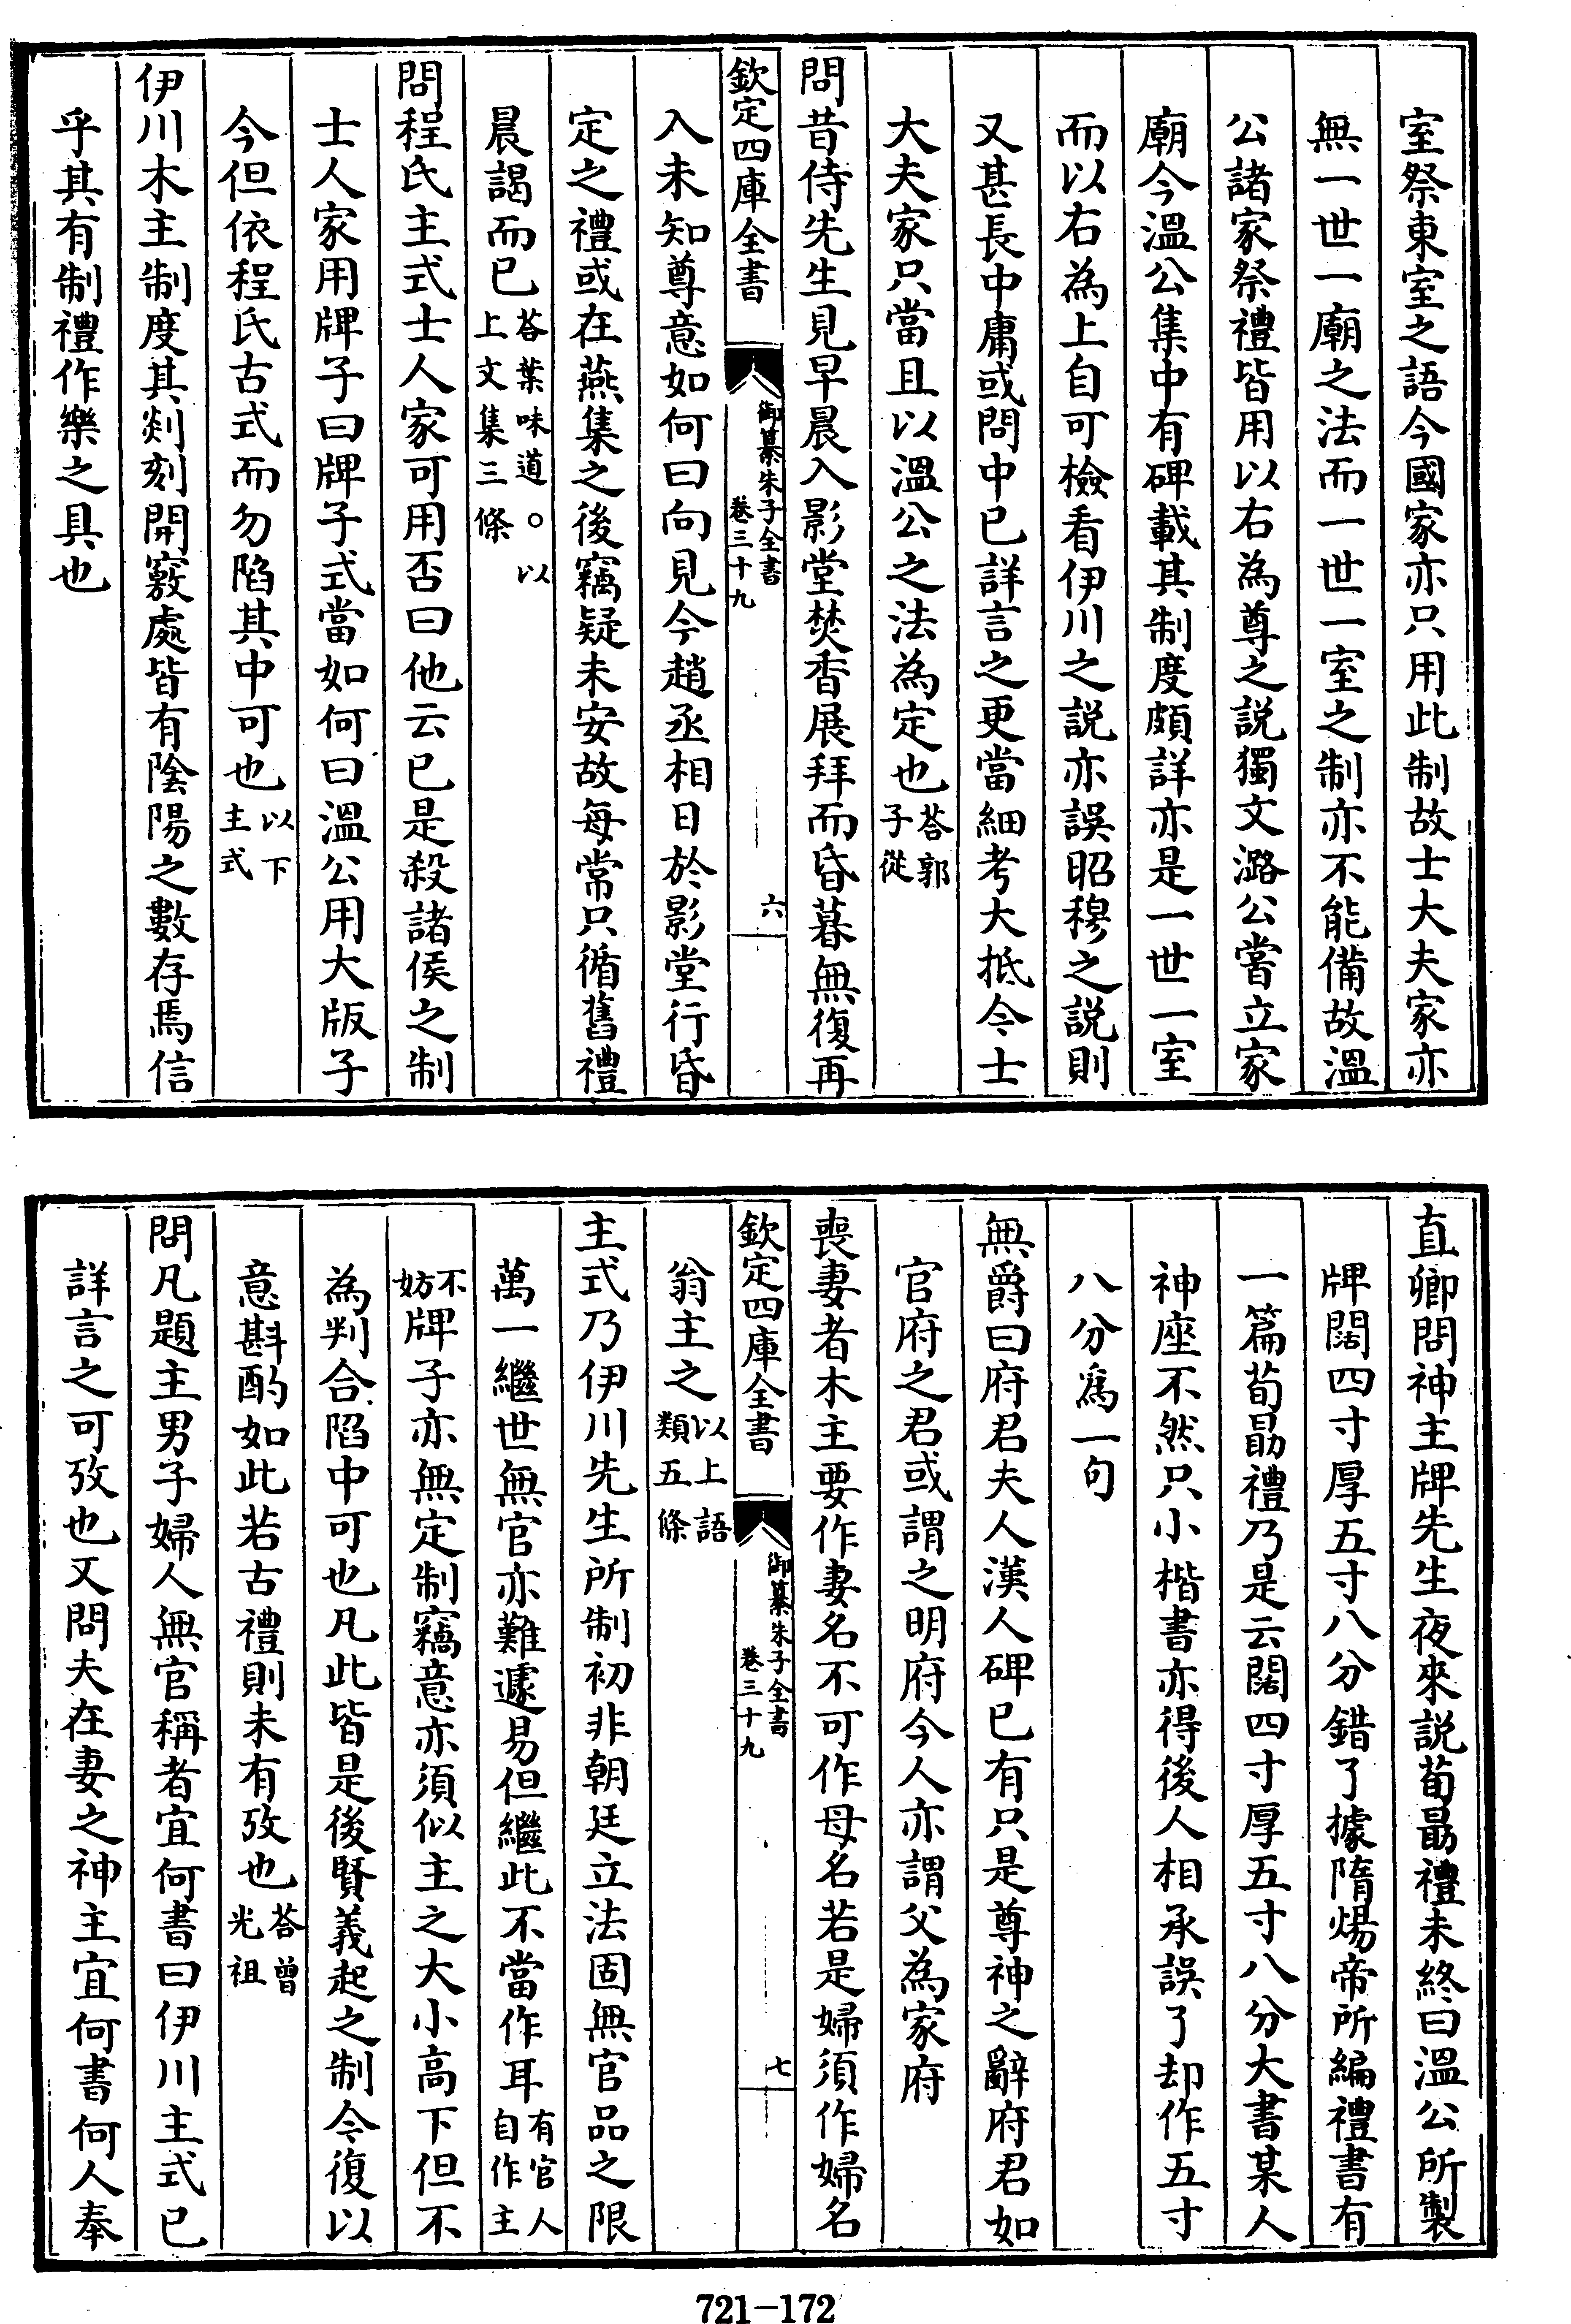 室祭東室之語今國家亦只用此制故士大夫家亦
無一世一廟之法而一世一室之制亦不能備故溫
公諸家祭禮皆用以右為尊之説獨文潞公嘗立家
廟今溫公集中有碑載其制度頗詳亦是一世一室
而以右為上自可檢看伊川之説亦誤昭穆之説則
又甚長中庸或問中已詳言之更當細考大抵今士
大夫家只當且以溫公之法為定也答郭子從
問昔侍先生見早晨入影堂焚香展拜而昏暮無復再
欽定四庫全書
御纂朱子全書
卷三十九
六
入未知尊意如何曰向見今趙丞相日於影堂行昏
定之禮或在燕集之後竊疑未安故每常只循舊禮
晨謁而已答葉味道○以上文集三條
問程氏主式士人家可用否曰他云已是殺諸侯之制
士人家用牌子曰牌子式當如何曰溫公用大版子
今但依程氏古式而勿陷其中可也以下主式
伊川木主制度其剡刻開竅處皆有陰陽之數存焉信
乎其有制禮作樂之具也
直卿問神主牌先生夜來説荀勗禮未終曰溫公所製
牌闊四寸厚五寸八分錯了據隋煬帝所編禮書有
一篇荀勗禮乃是云闊四寸厚五寸八分大書某人
神座不然只小楷書亦得後人相承誤了却作五寸
八分為一句
無爵曰府君夫人漢人碑已有只是尊神之辭府君如
官府之君或謂之明府今人亦謂父為家府
喪妻者木主要作妻名不可作母名若是婦須作婦名
欽定四庫全書
御纂朱子全書
卷三十九
七
翁主之以上語類五條
主式乃伊川先生所制初非朝廷立法固無官品之限
萬一繼世無官亦難遽易但繼此不當作耳有官人自作主
不妨牌子亦無定制竊意亦須似主之大小高下但不
為判合陷中可也凡此皆是後賢義起之制今復以
意斟酌如此若古禮則未有攷也答曾光祖
問凡題主男子婦人無官稱者宜何書曰伊川主式已
詳言之可攷也又問夫在妻之神主宜何書何人奉
721-172